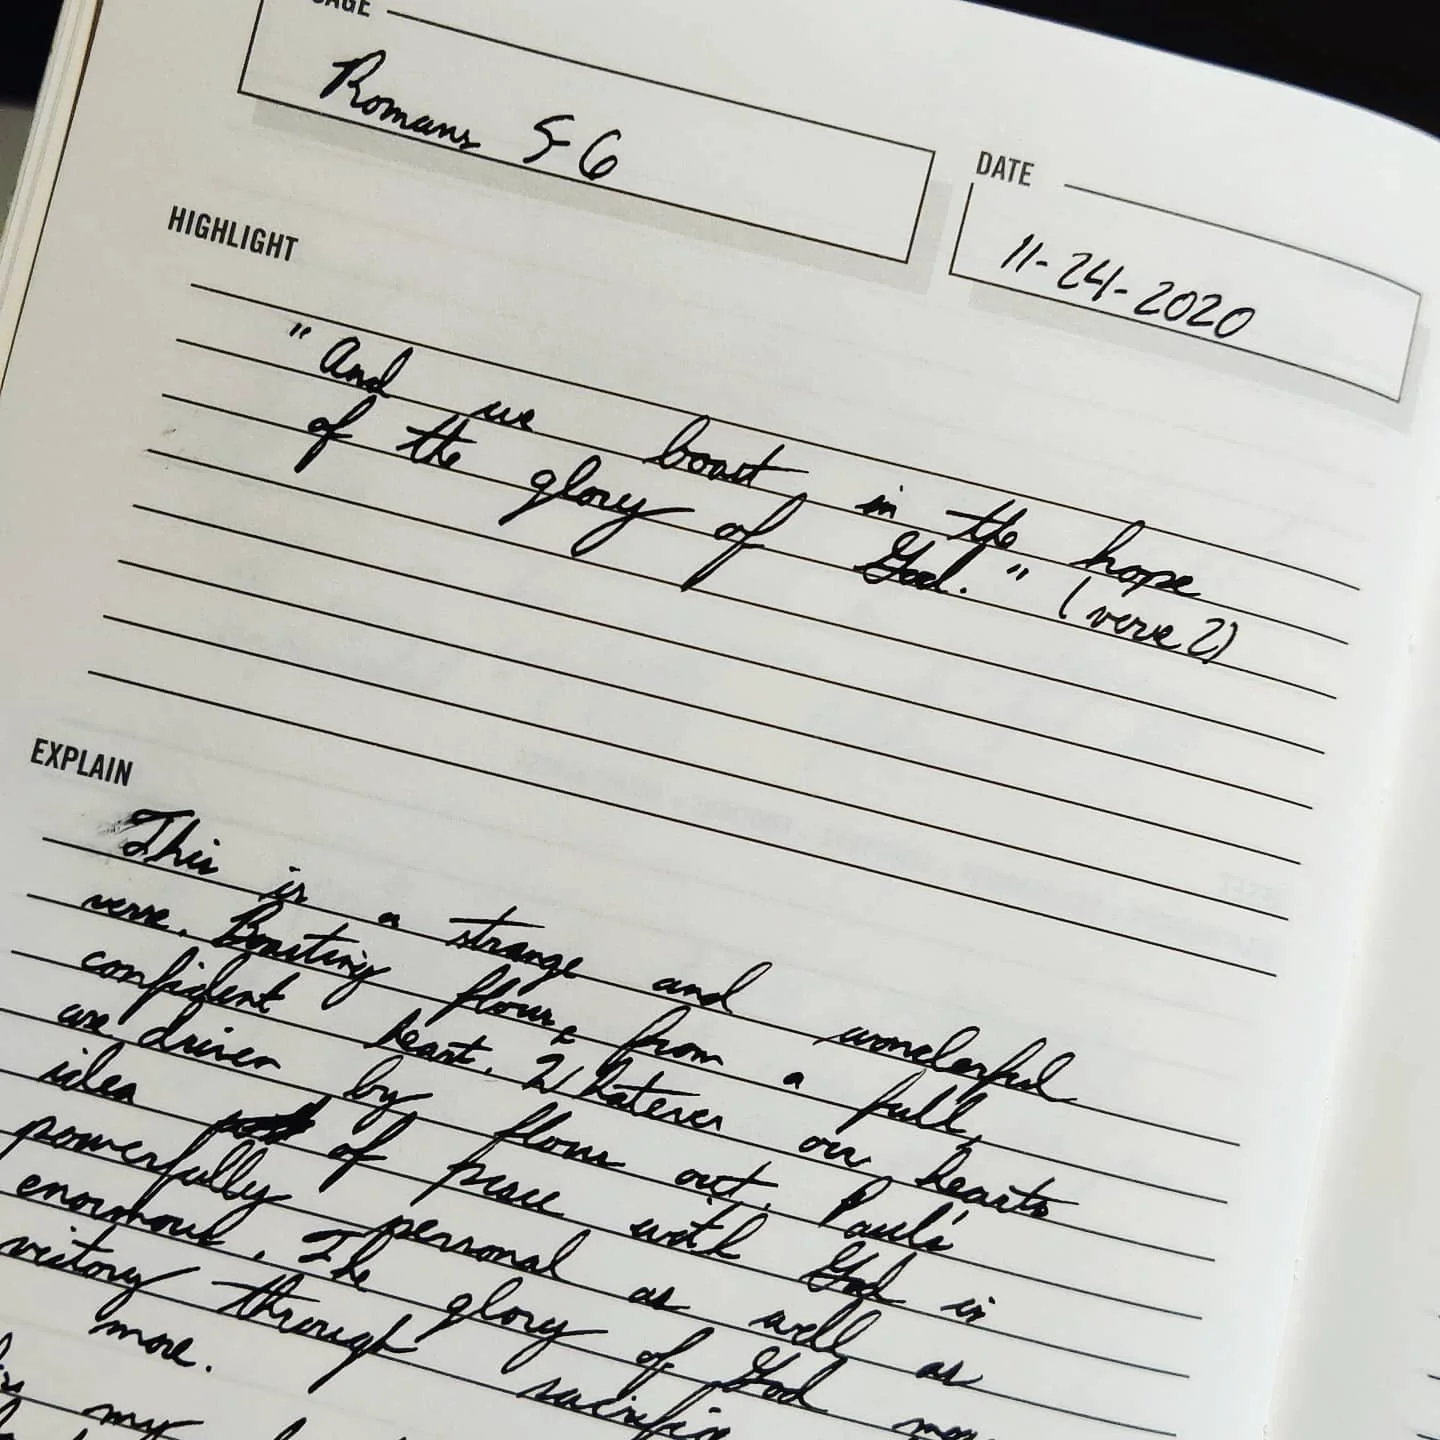 Romans 5-6
DATE
11-24-2020
HIGHLIGHT
"And we boast in the hope
of the glory of God." (verse 2)
EXPLAIN
This is a strange and wonderful
verse. Boasting flows from a full,
confident heart. Whatever our hearts
are driven by flows out. Paul's
idea of peace with God is
powerfully personal as well as
enormous. The glory of God
victory through
more.
my